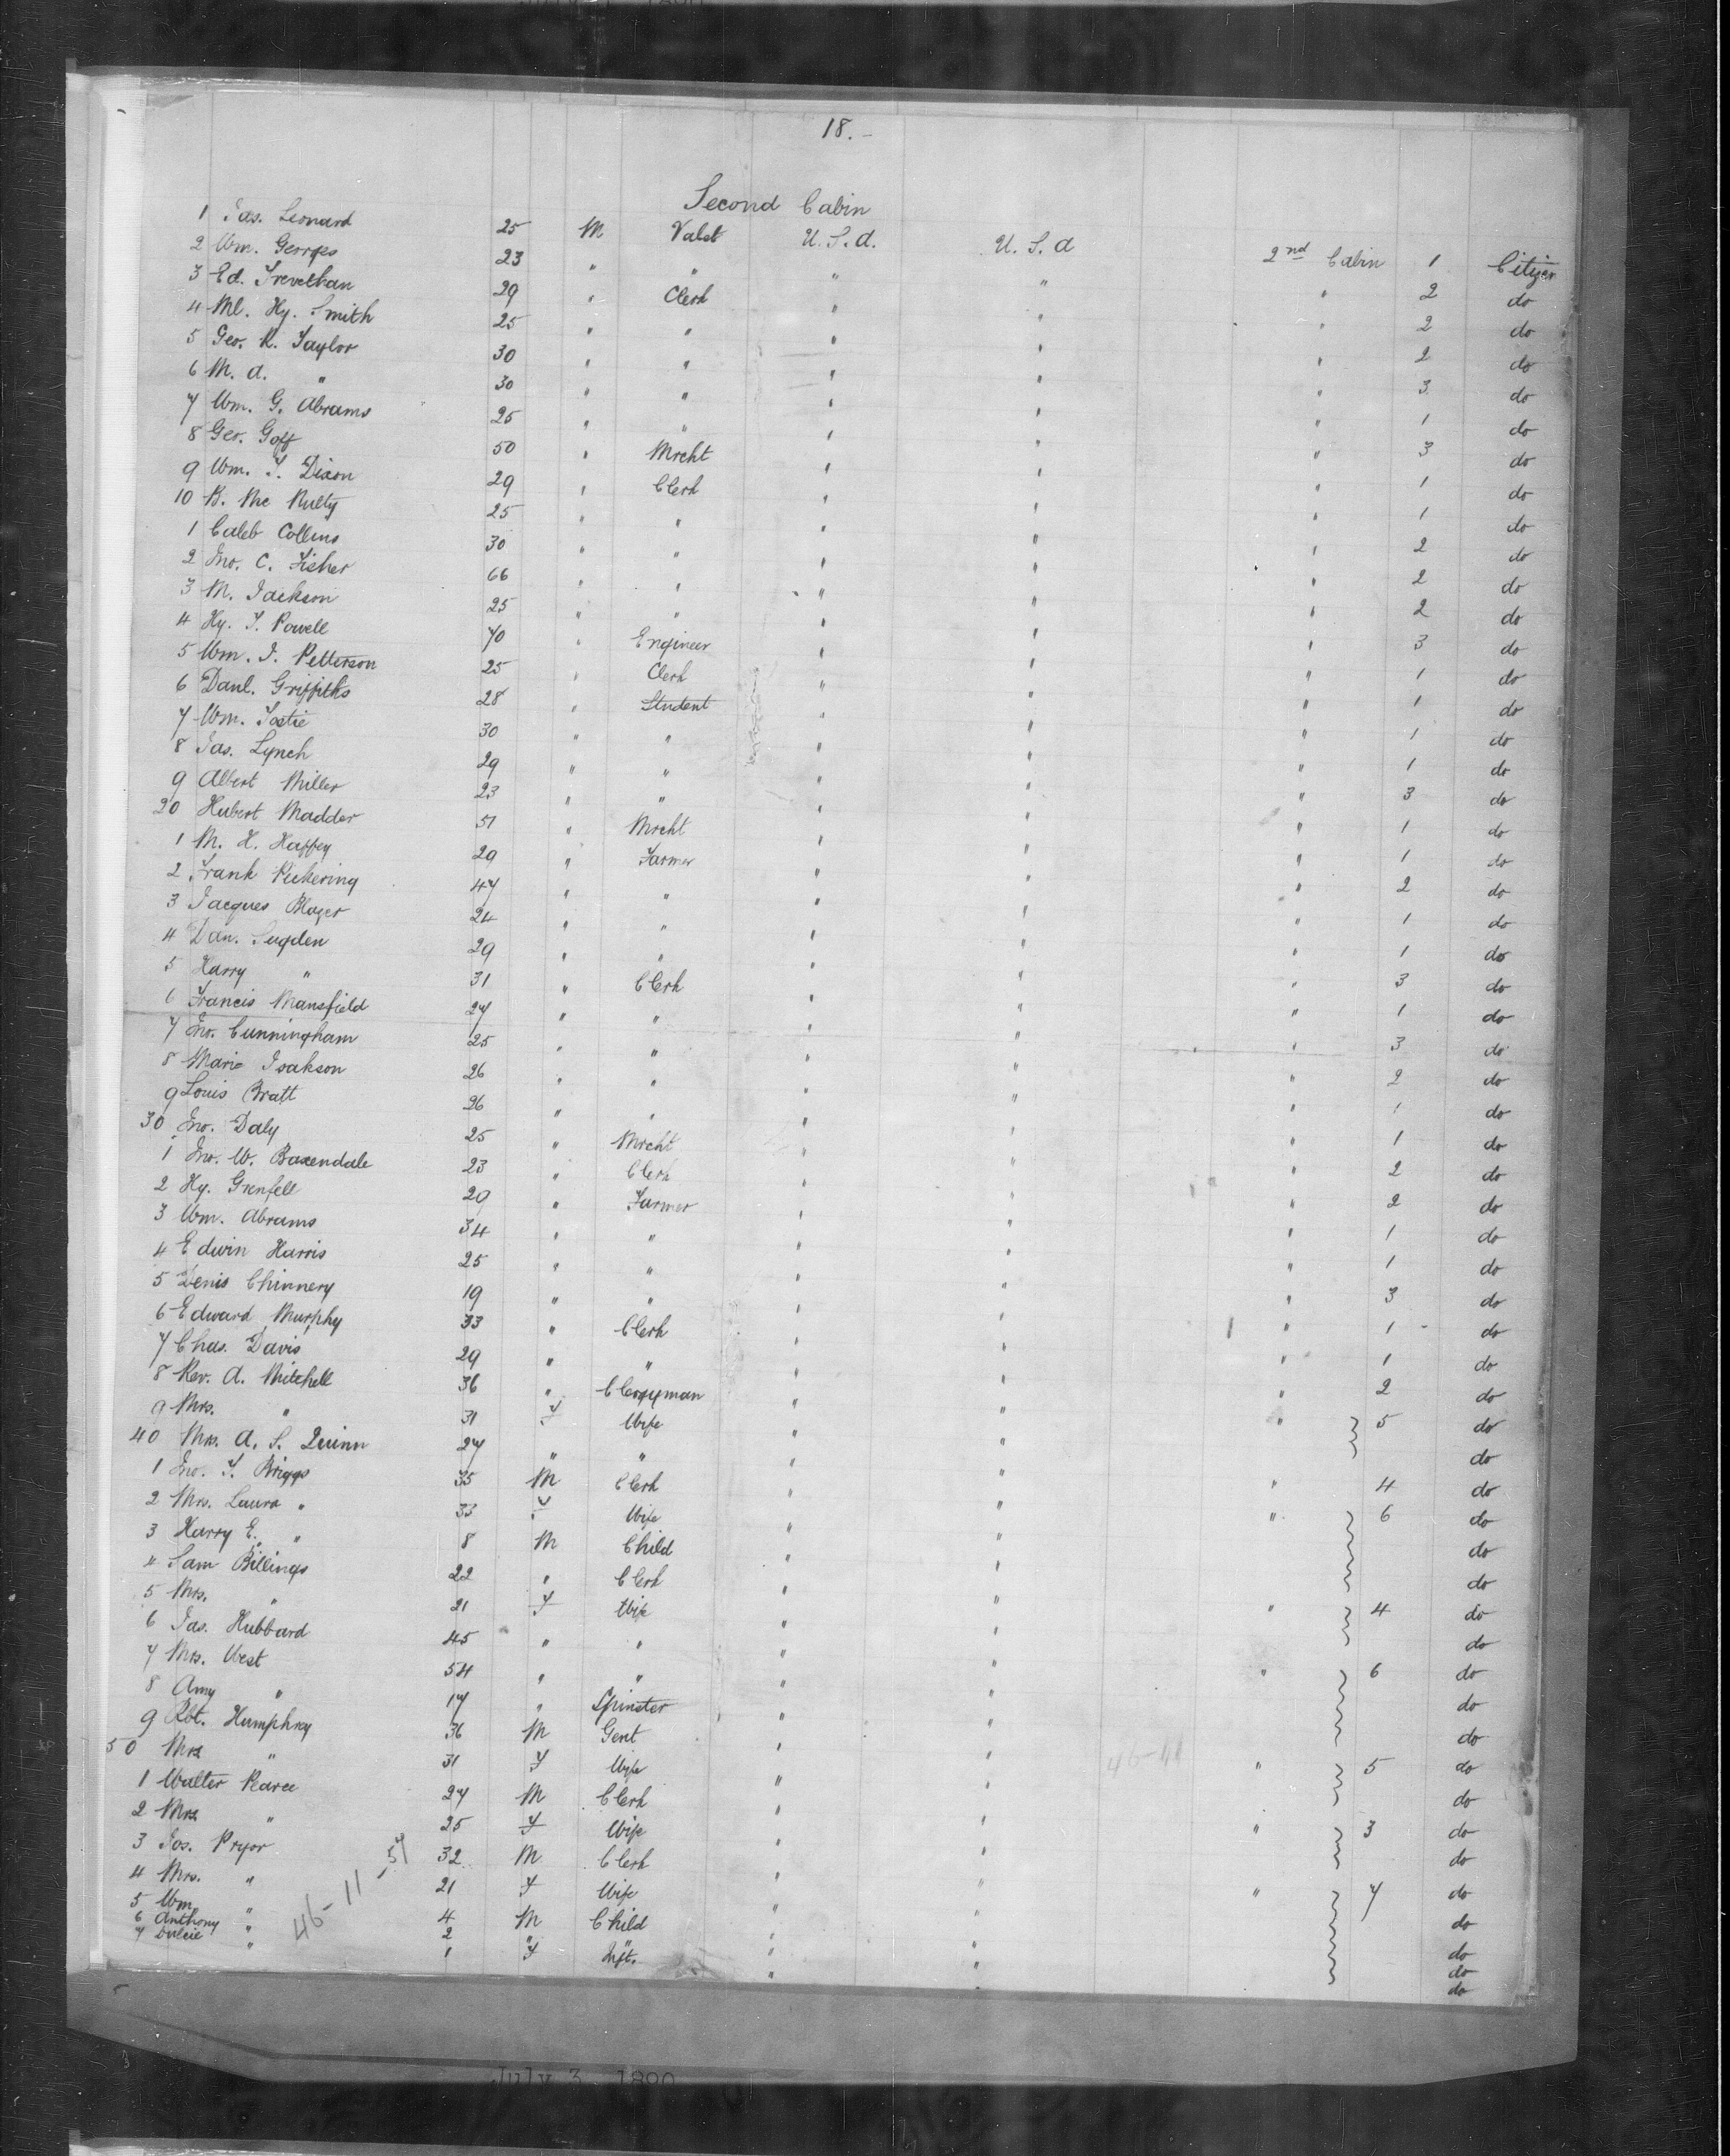 18.-
Second Cabin
1 Jas. Leonard 25 M Valet U.S.A. U.S.A 2nd Cabin 1 Citizen
2 Wm. Gerrges 23 " " " " " 2 do
3 Ed. Trevethan 29 " Clerk " " " 2 do
4 Ml. Hy. Smith 25 " " " " " 2 do
5 Geo. R. Taylor 30 " " " " " 3 do
6 M. A. " 30 " " " " " 1 do
7 Wm. G. Abrams 25 " " " " " 3 do
8 Geo. Goff 50 " Mrcht " " " 1 do
9 Wm. T. Dixon 29 " Clerk " " " 1 do
10 B. Mc Nulty 25 " " " " " 2 do
1 Caleb Collins 30 " " " " " 2 do
2 Jno. C. Fisher 66 " " " " " 2 do
3 M. Jackson 25 " " " " " 3 do
4 Hy. T. Powell 70 " Engineer " " " 1 do
5 Wm. J. Petterson 25 " Clerk " " " 1 do
6 Danl. Griffiths 28 " Student " " " 1 do
7 Wm. Tostie 30 " " " " " 1 do
8 Jas. Lynch 29 " " " " " 3 do
9 Albert Miller 23 " " " " " 1 do
20 Hubert Madder 51 " Mrcht " " " 1 do
1 M. H. Haffey 29 " Farmer " " " 2 do
2 Frank Pickering 47 " " " " " 1 do
3 Jacques Blazer 24 " " " " " 1 do
4 Dan. Sugden 29 " " " " " 3 do
5 Harry " 31 " Clerk " " " 1 do
6 Francis Mansfield 27 " " " " " 3 do
7 Jno. Cunningham 25 " " " " " 2 do
8 Marie Isakson 26 " " " " " 1 do
9 Louis Bratt 26 " " " " " 1 do
30 Jno. Daly 25 " Mrcht " " " 2 do
1 Jno. W. Baxendale 23 " Clerk " " " 2 do
2 Hy. Grenfell 29 " Farmer " " " 1 do
3 Wm. Abrams 34 " " " " " 1 do
4 Edwin Harris 25 " " " " " 3 do
5 Denis Chinnery 19 " " " " " 1 do
6 Edward Murphy 33 " Clerk " " " 1 do
7 Chas. Davis 29 " " " " " 2 do
8 Rev. A. Mitchell 36 " Clergyman " " " 5 do
9 Mrs. " 31 F Wife " " do
40 Mrs. A. S. Quinn 27 " " " " " 4 do
1 Jno. T. Briggs 35 M Clerk " " " 6 do
2 Mrs. Laura " 33 F Wife " " do
3 Harry E. " 8 M Child " " do
4 Sam Billings 22 " Clerk " " " 4 do
5 Mrs. " 21 F Wife " " do
6 Jas. Hubbard 45 " " " " " 6 do
7 Mrs. West 54 " " " " do
8 Amy " 17 " Spinster " " do
9 Rbt. Humphrey 36 M Gent " " " 5 do
50 Mrs " 31 F Wife " " do
1 Walter Pearce 27 M Clerk " " " 3 do
2 Mrs " 25 F Wife " " do
3 Jos. Pryor 32 M Clerk " " " 7 do
4 Mrs. " 21 F Wife " " do
5 Wm " 4 M Child " " do
6 Anthony " 2 " " " " do
7 Dulcie " 1 F Inft. " " do
46-11
46-11-57
July 3, 1890